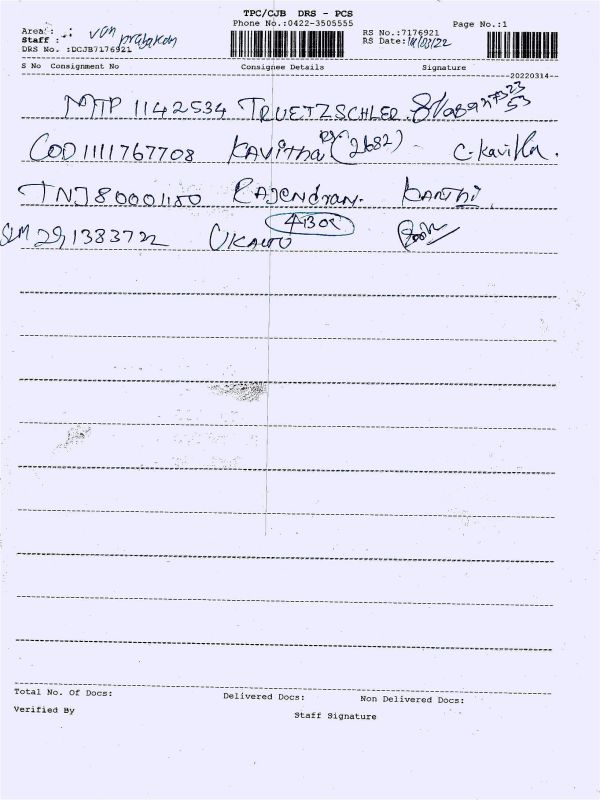 TPC/CJB DRS - PCS
Phone No.:0422-3505555
Page No.:1
Area :
Staff : van prabakan
DRS No. :DCJB7176921
RS No.:7176921
RS Date:14/03/22
S No Consignment No Consignee Details Signature
20220314
MTP 1142534 TRUETZSCHLER
COD1111767708 KAVITHA RS (2682) - C.Kavitha.
TNJ80001150 RAJENdran. KANTHI
4 BOX
SLM 291383722
Total No. Of Docs: Delivered Docs: Non Delivered Docs:
Verified By Staff Signature